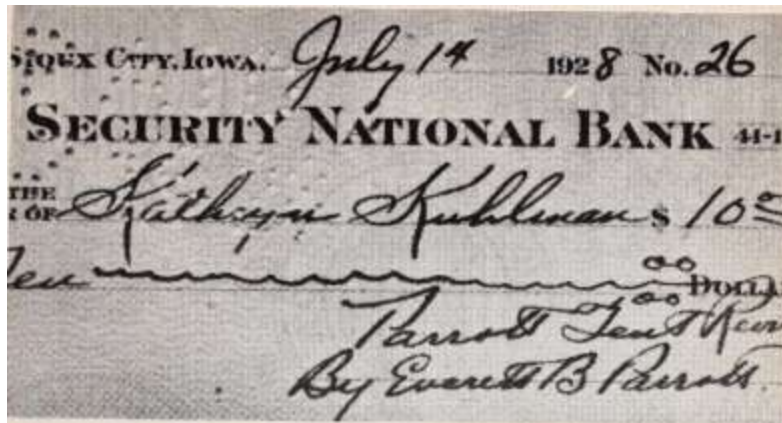 Sioux City, Iowa. July 14 1928 No. 26
Security National Bank 44-1
THE
R OF Kathryn Kuhlman $ 10 00
Ten 00 Dolla
Parrott Tent
By Everett B Parrott